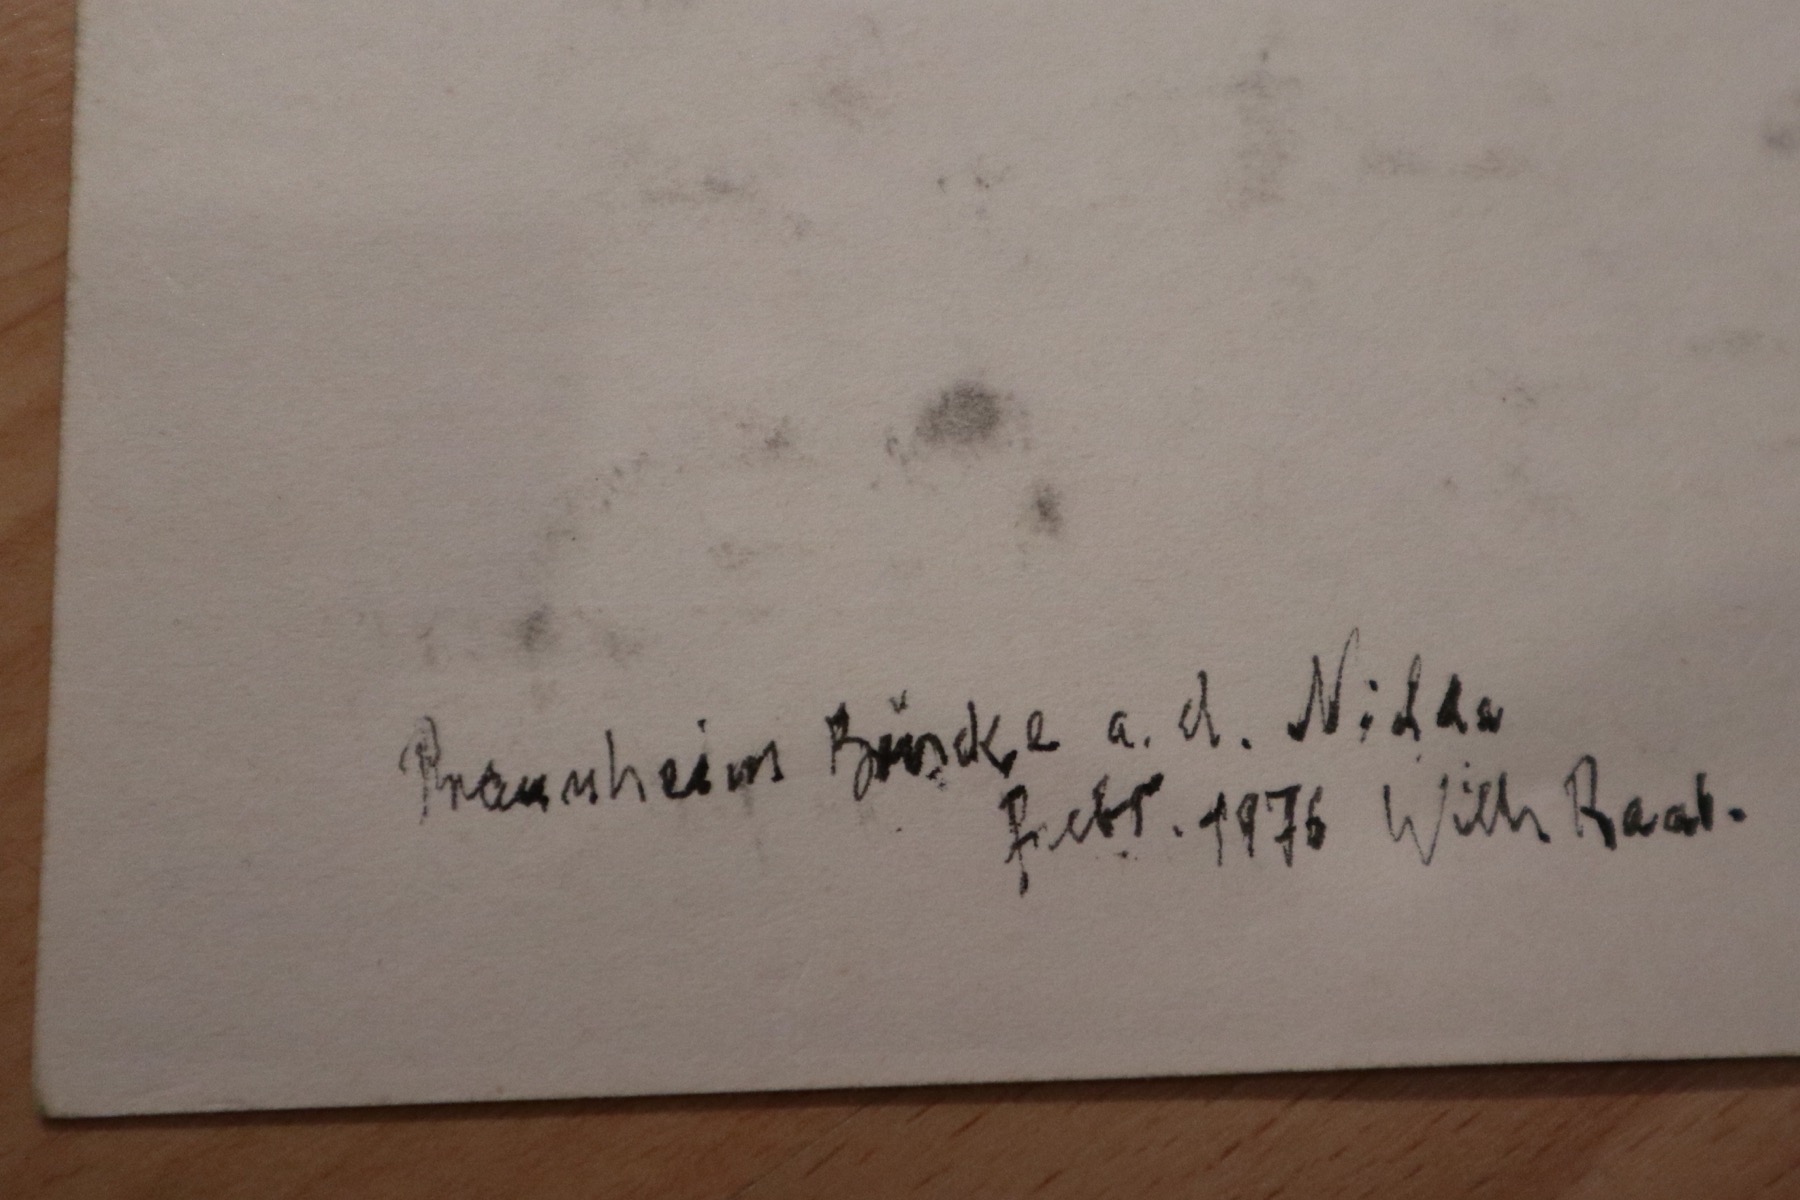 Praunheim Brücke a. d. Nidda
Febr. 1976 Wilh Raab.